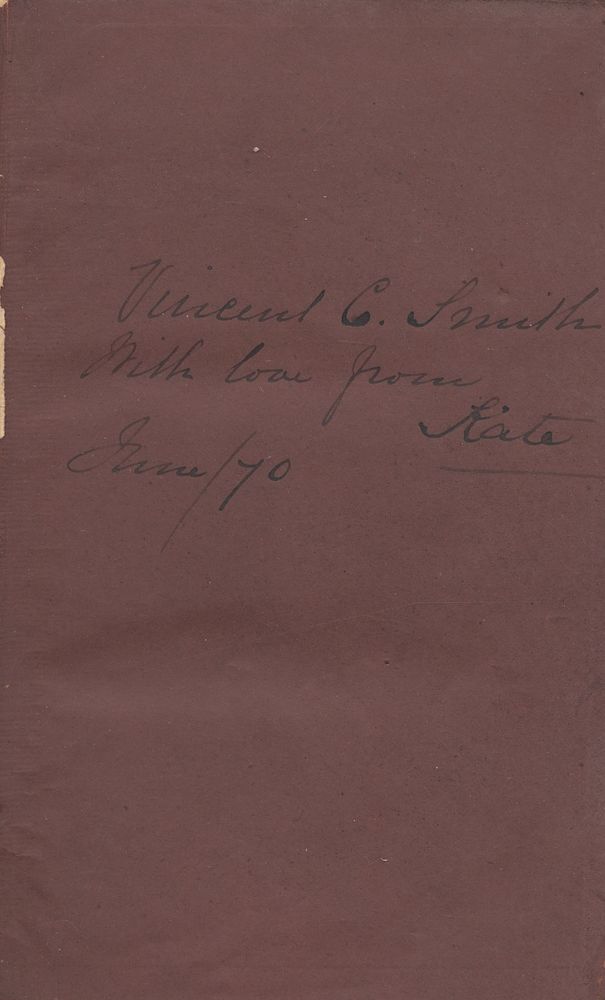 Vincent C. Smith
With love from
Kate
June/70